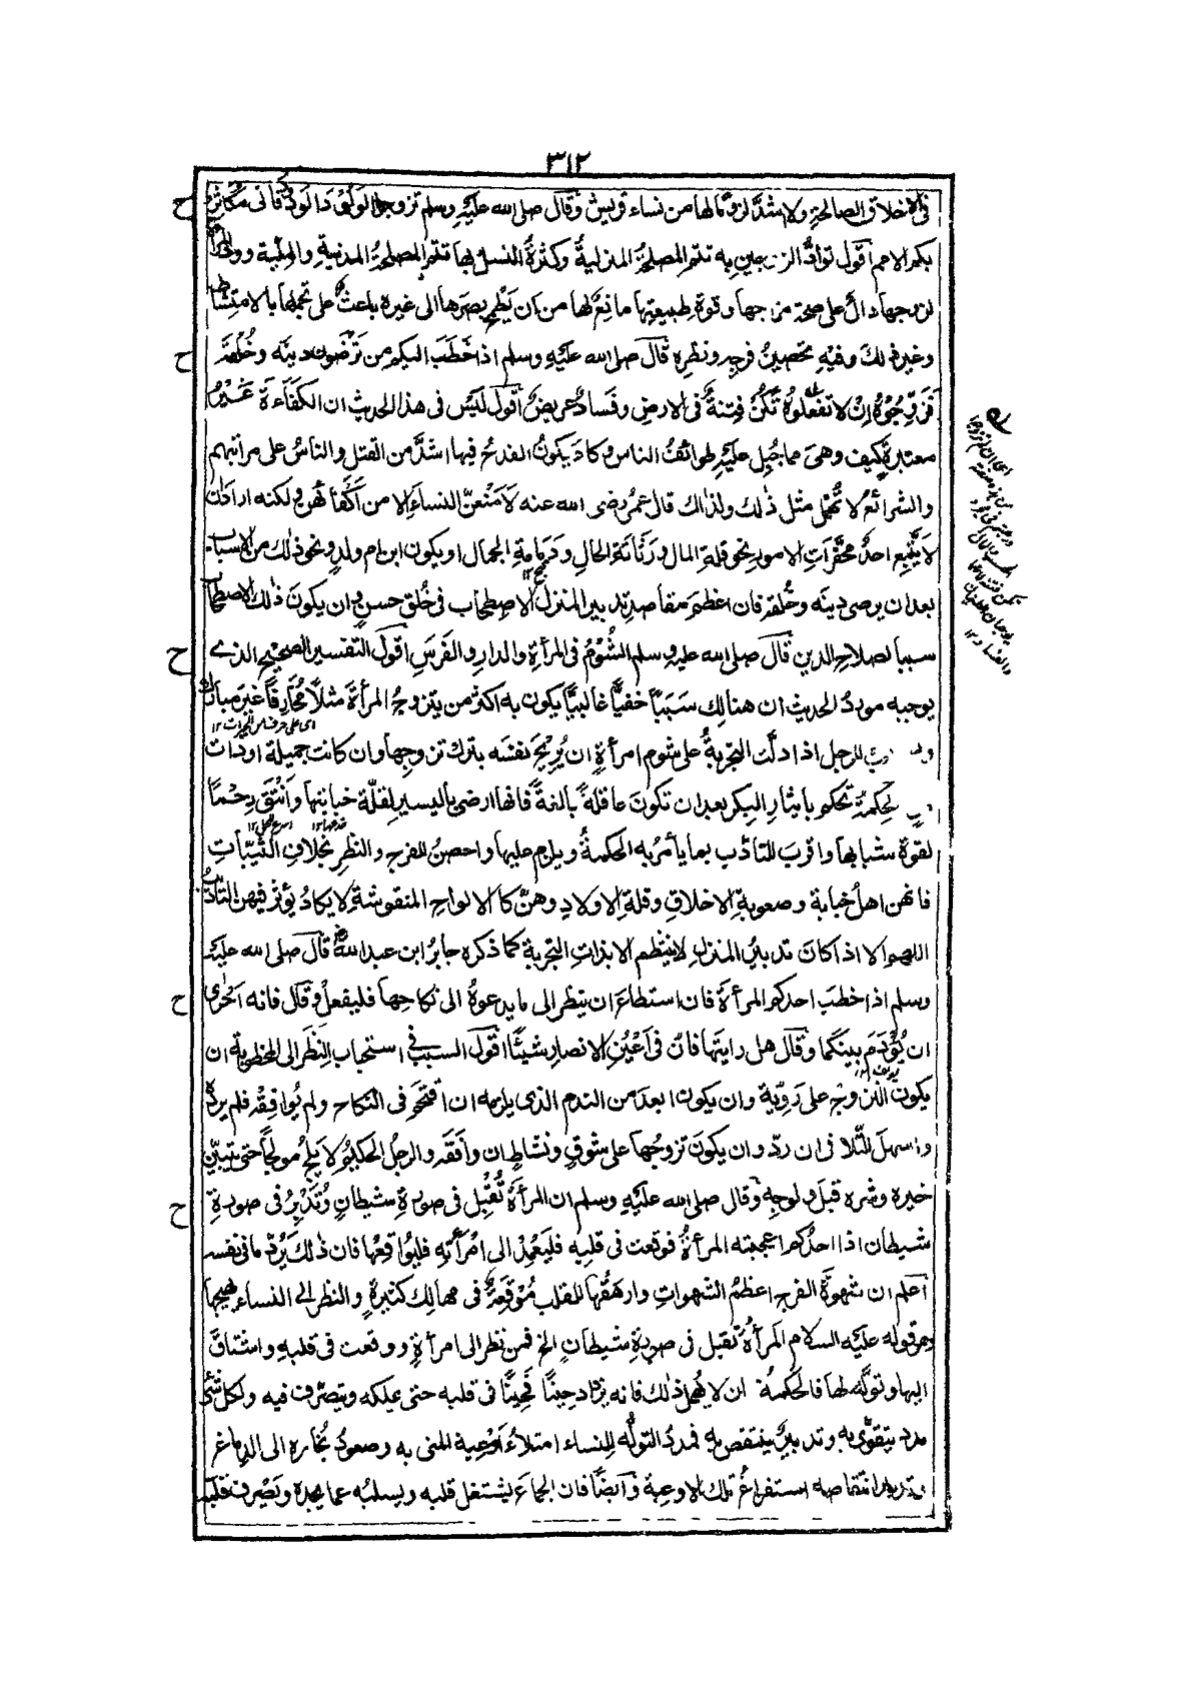 ٣١٢
فى الاخلاق الصالحة ولا اشد لزوجها لها من نساء قريش وقال صلى الله عليه وسلم تزوجوا الولود الودود فانى مكاثر
بكم الامم اقول تواد الزوجين به تتم المصلحة المنزلية وكثرة النسل بها تتم المصلحة المدنية والملية وود المرأة
لزوجها دال على صحة مزاجها وقوة طبيعتها مانع لها من ان يطمح بصرها الى غيره باعث على تجملها بالامتشاط
وغير ذلك وفيه تحصين فرجه ونظره قال صلى الله عليه وسلم اذا خطب اليكم من ترضون دينه وخلقه
فزوجوه ان لا تفعلوه تكن فتنة فى الارض وفساد عريض اقول ليس فى هذا الحديث ان الكفاءة غير
معتبرة كيف وهى مما جبل عليه طوائف الناس وكاد يكون القدح فيها اشد من القتل والناس على مراتبهم
والشرائع لا تهمل مثل ذلك ولذلك قال عمر رضى الله عنه لامنعن النساء الا من اكفائهن ولكنه اراد ان
لا يتبع احد محقرات الامور نحو قلة المال ورثاثة الحال ودمامة الجمال او يكون ابن ام ولد ونحو ذلك من الاسباب
بعد ان يرضى دينه وخلقه فان اعظم مقاصد تدبير المنزل الاصطحاب فى خلق حسن وان يكون ذلك الاصطحاب
سببا لصلاح الدين قال صلى الله عليه وسلم الشؤم فى المرأة والدار والفرس اقول التفسير الصحيح الذى
يوجبه مورد الحديث ان هنالك سببا خفيا غالبيا يكون به اكثر من يتزوج المرأة مثلا محارفا غير مبارك
للرجل اذا دلت التجربة على شوم امرأة ان يريح نفسه بترك تزوجها وان كانت جميلة او ذات
لحكمة تحكم بايثار البكر بعد ان تكون عاقلة بالغة فانها ارضى باليسير لقلة خبابتها وانتق رحما
لقوة شبابها واقرب للتأدب بما يأمر به الحكمة ويلزم عليها واحصن للفرج والنظر بخلاف الثيبات
فانهن اهل خبابة وصعوبة الاخلاق وقلة الاولاد وهن كالالواح المنقوشة لا يكاد يؤثر فيهن التأدب
اللهم الا اذا كان تدبير المنزل لا ينتظم الا بذات التجربة كما ذكره جابر ابن عبد الله قال صلى الله عليه
وسلم اذا خطب احدكم المرأة فان استطاع ان ينظر الى ما يدعوه الى نكاحها فليفعل وقال فانه احرى
ان يؤدم بينكما وقال هل رايتها فان فى اعين الانصار شيئا اقول السبب فى استحباب النظر الى المخطوبة ان
يكون التزوج على روية وان يكون ابعد من الندم الذى يلزمه ان اقتحم فى النكاح ولم يوافقه فلم يرده
واسهل للتلافى ان رد وان يكون تزوجها على شوق ونشاط ان وافقه والرجل الحكيم لا يلج مولجا حتى يتبين
خيره وشره قبل ولوجه وقال صلى الله عليه وسلم ان المرأة تقبل فى صورة شيطان وتدبر فى صورة
شيطان اذا احدكم اعجبته المرأة فوقعت فى قلبه فليعمد الى امرأته فليواقعها فان ذلك يرد ما فى نفسه
اعلم ان شهوة الفرج اعظم الشهوات وارهقها للقلب موقعة فى مهالك كثيرة والنظر الى النساء يهيجها
وهو قوله عليه السلام المرأة تقبل فى صورة شيطان الخ فمن نظر الى امرأة ووقعت فى قلبه واشتاق
اليها وتوله لها فالحكمة ان لا يهمل ذلك فانه يزداد حينا فحينا فى قلبه حتى يملكه ويتصرف فيه ولكل شئ
مدد يتقوى به وتدبير ينتقص به فمدد التوله للنساء امتلاء اوعية المنى به وصعود بخاره الى الدماغ
وتدبير انتقاصه استفراغ تلك الاوعية وايضا فان الجماع يشتغل قلبه ويسليه عما يجده ويصرف قلبه